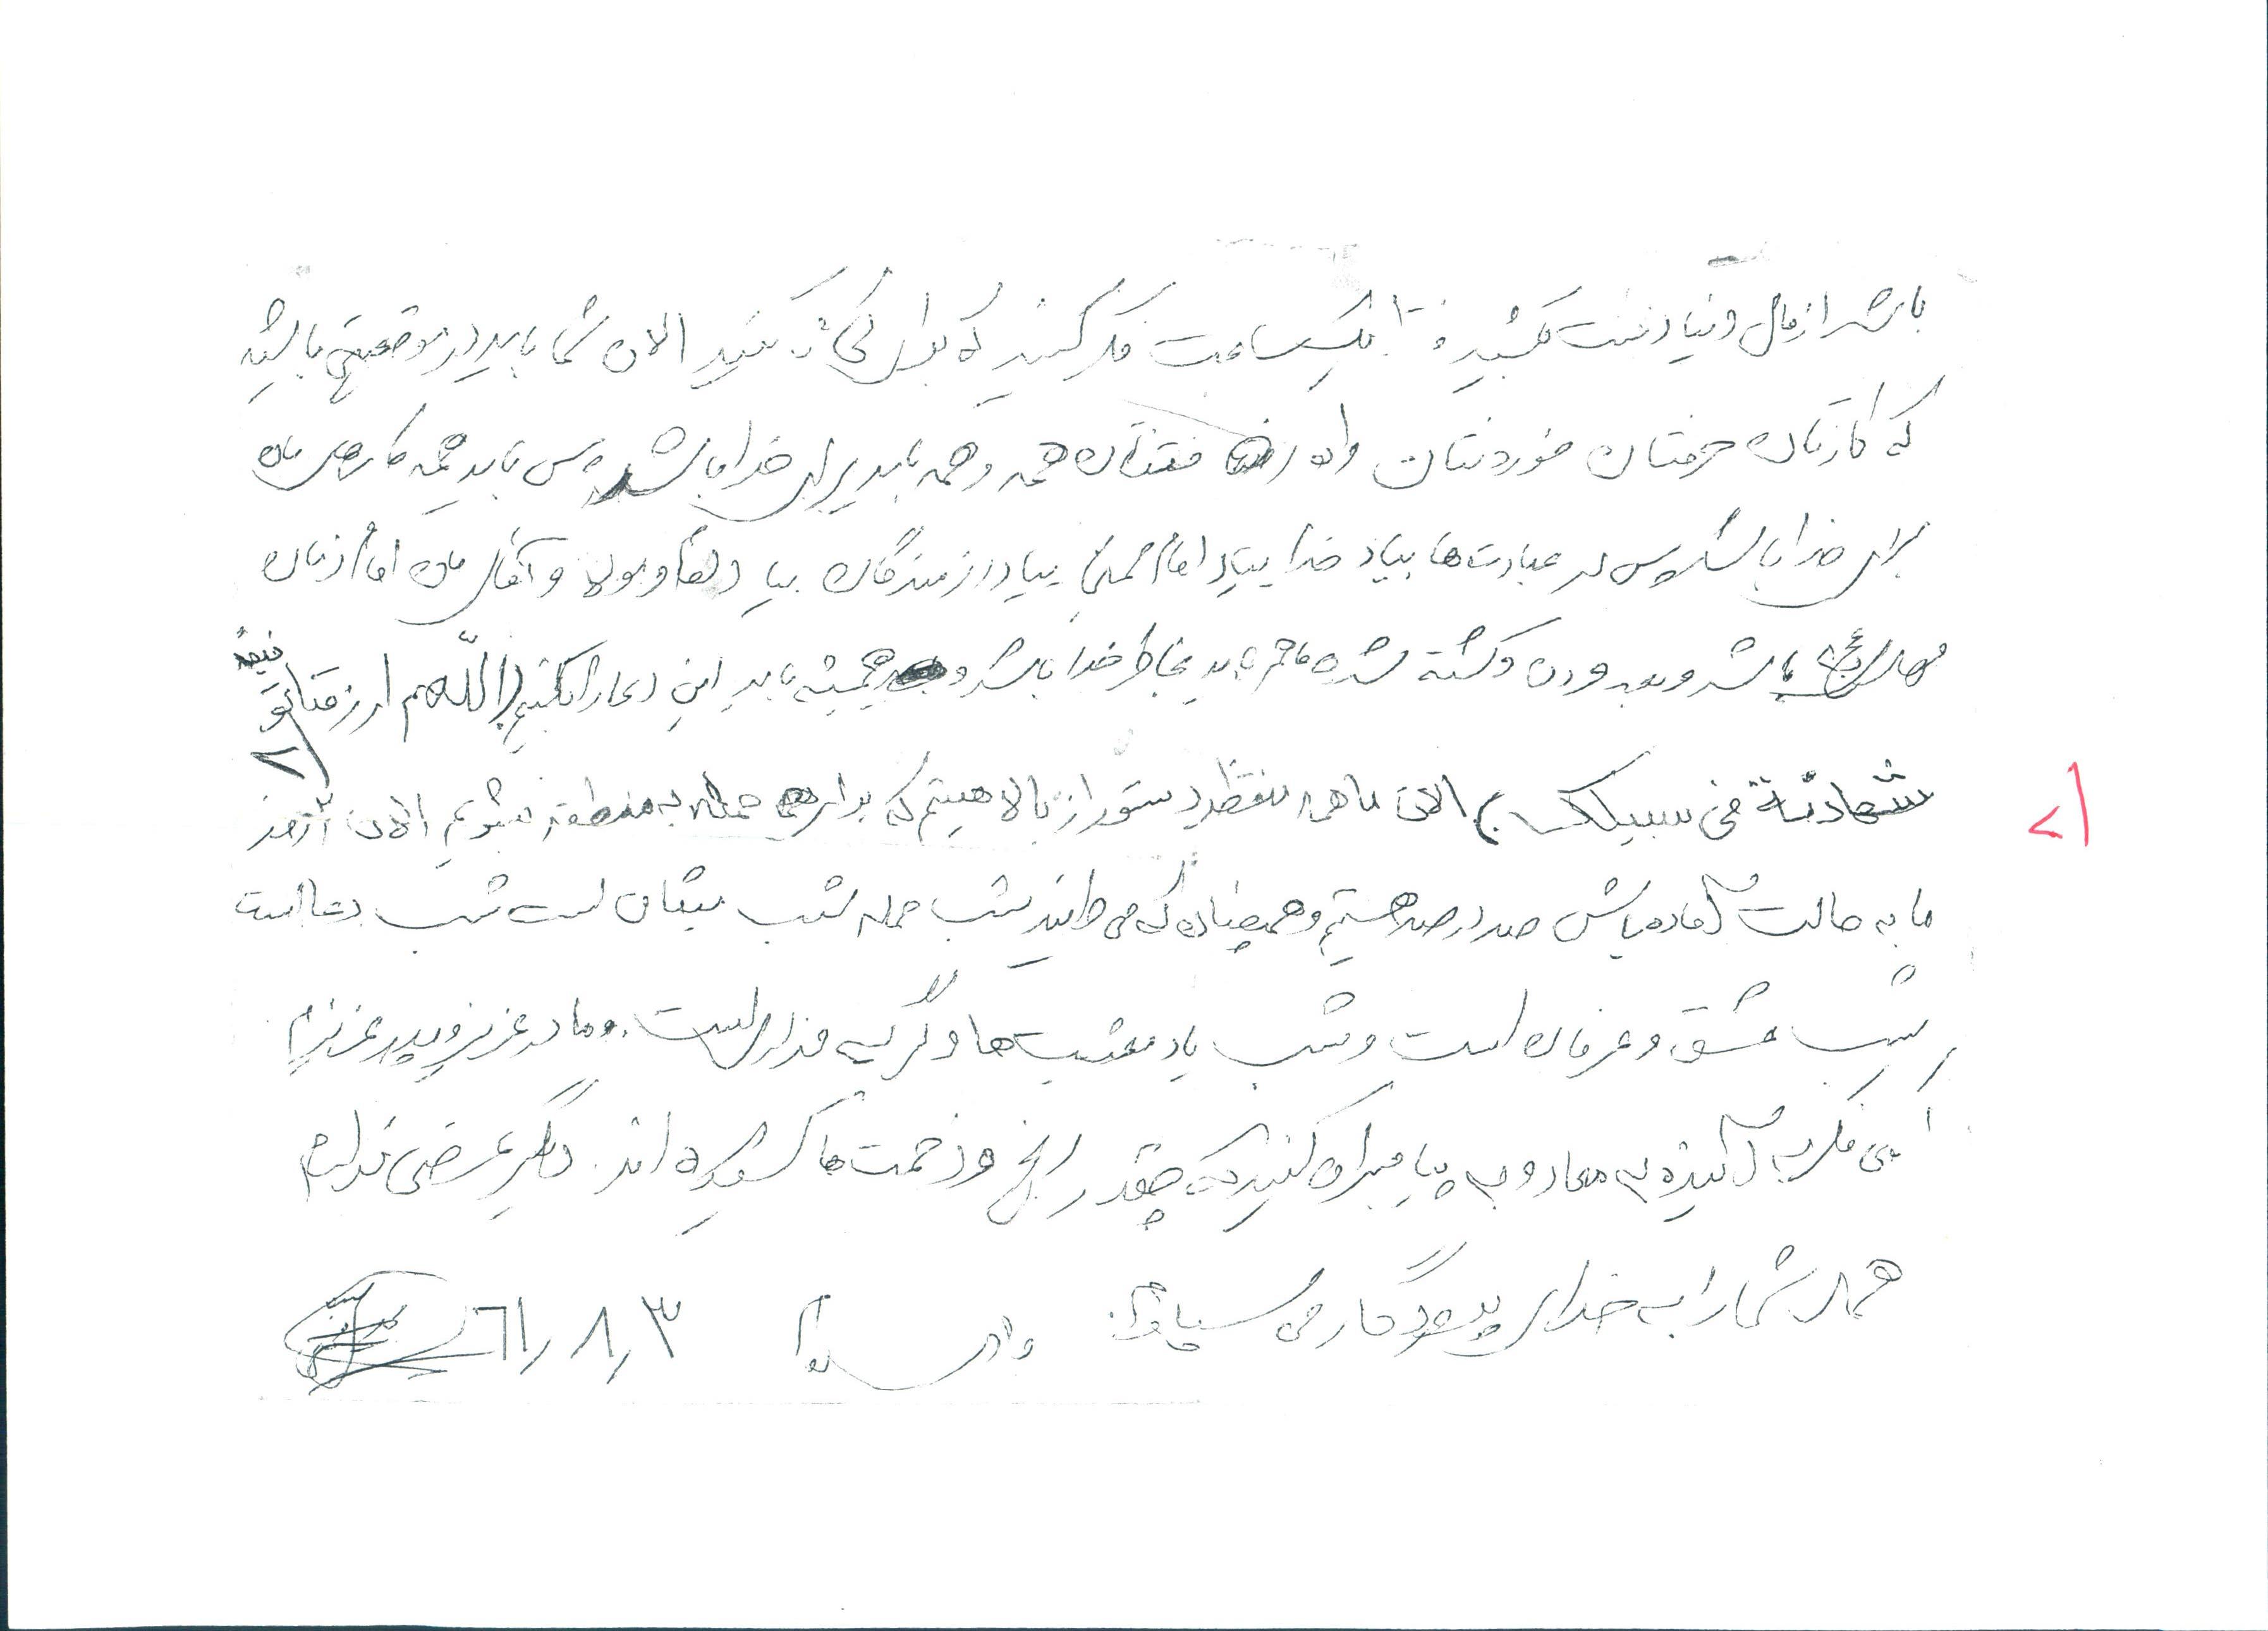 باشد از مال دنیا دست بکشید و تا یکساعت فکر کنید که برای کی کار می‌کنید الان شما باید در موقعیتی باشید
که کارتان حرفتان خوردنتان و راه رفتنتان همه و همه باید برای خدا باشد پس باید همه کارهای مان
برای خدا باشد پس در عبادت‌ها بیاد خدا بیاد امام خمینی بیاد رزمندگان بیاد و مولا و آقای مان امام زمان
مهدی (عج) باشد و بعد و کشته شدن ما هم باید بخاطر خدا باشد و همیشه باید این دعا را بکنیم (اللهم ارزقنا توفیق
شهادتة فی سبیلک) الان ما همه منتظر دستور از بالا هستیم که برای حمله به منطقه بشویم الان
ما به حالت آماده باش صد در صد هستیم و همچنان که می دانید شب حمله شب میثاق است شب دعا است
شب عشق و عرفان است و شب یاد معشب‌ها و گریه فداران است. و مادر عزیز و پدر عزیزم
کمی فکر به آینده به معاد و به پیامبران کنید که چقدر رنج و زحمت‌ها کشیده اند. دیگر عرضی ندارم
همه شما را به خدای پروردگار می سپارم. والسلام ۶۱٫۸٫۳
۲